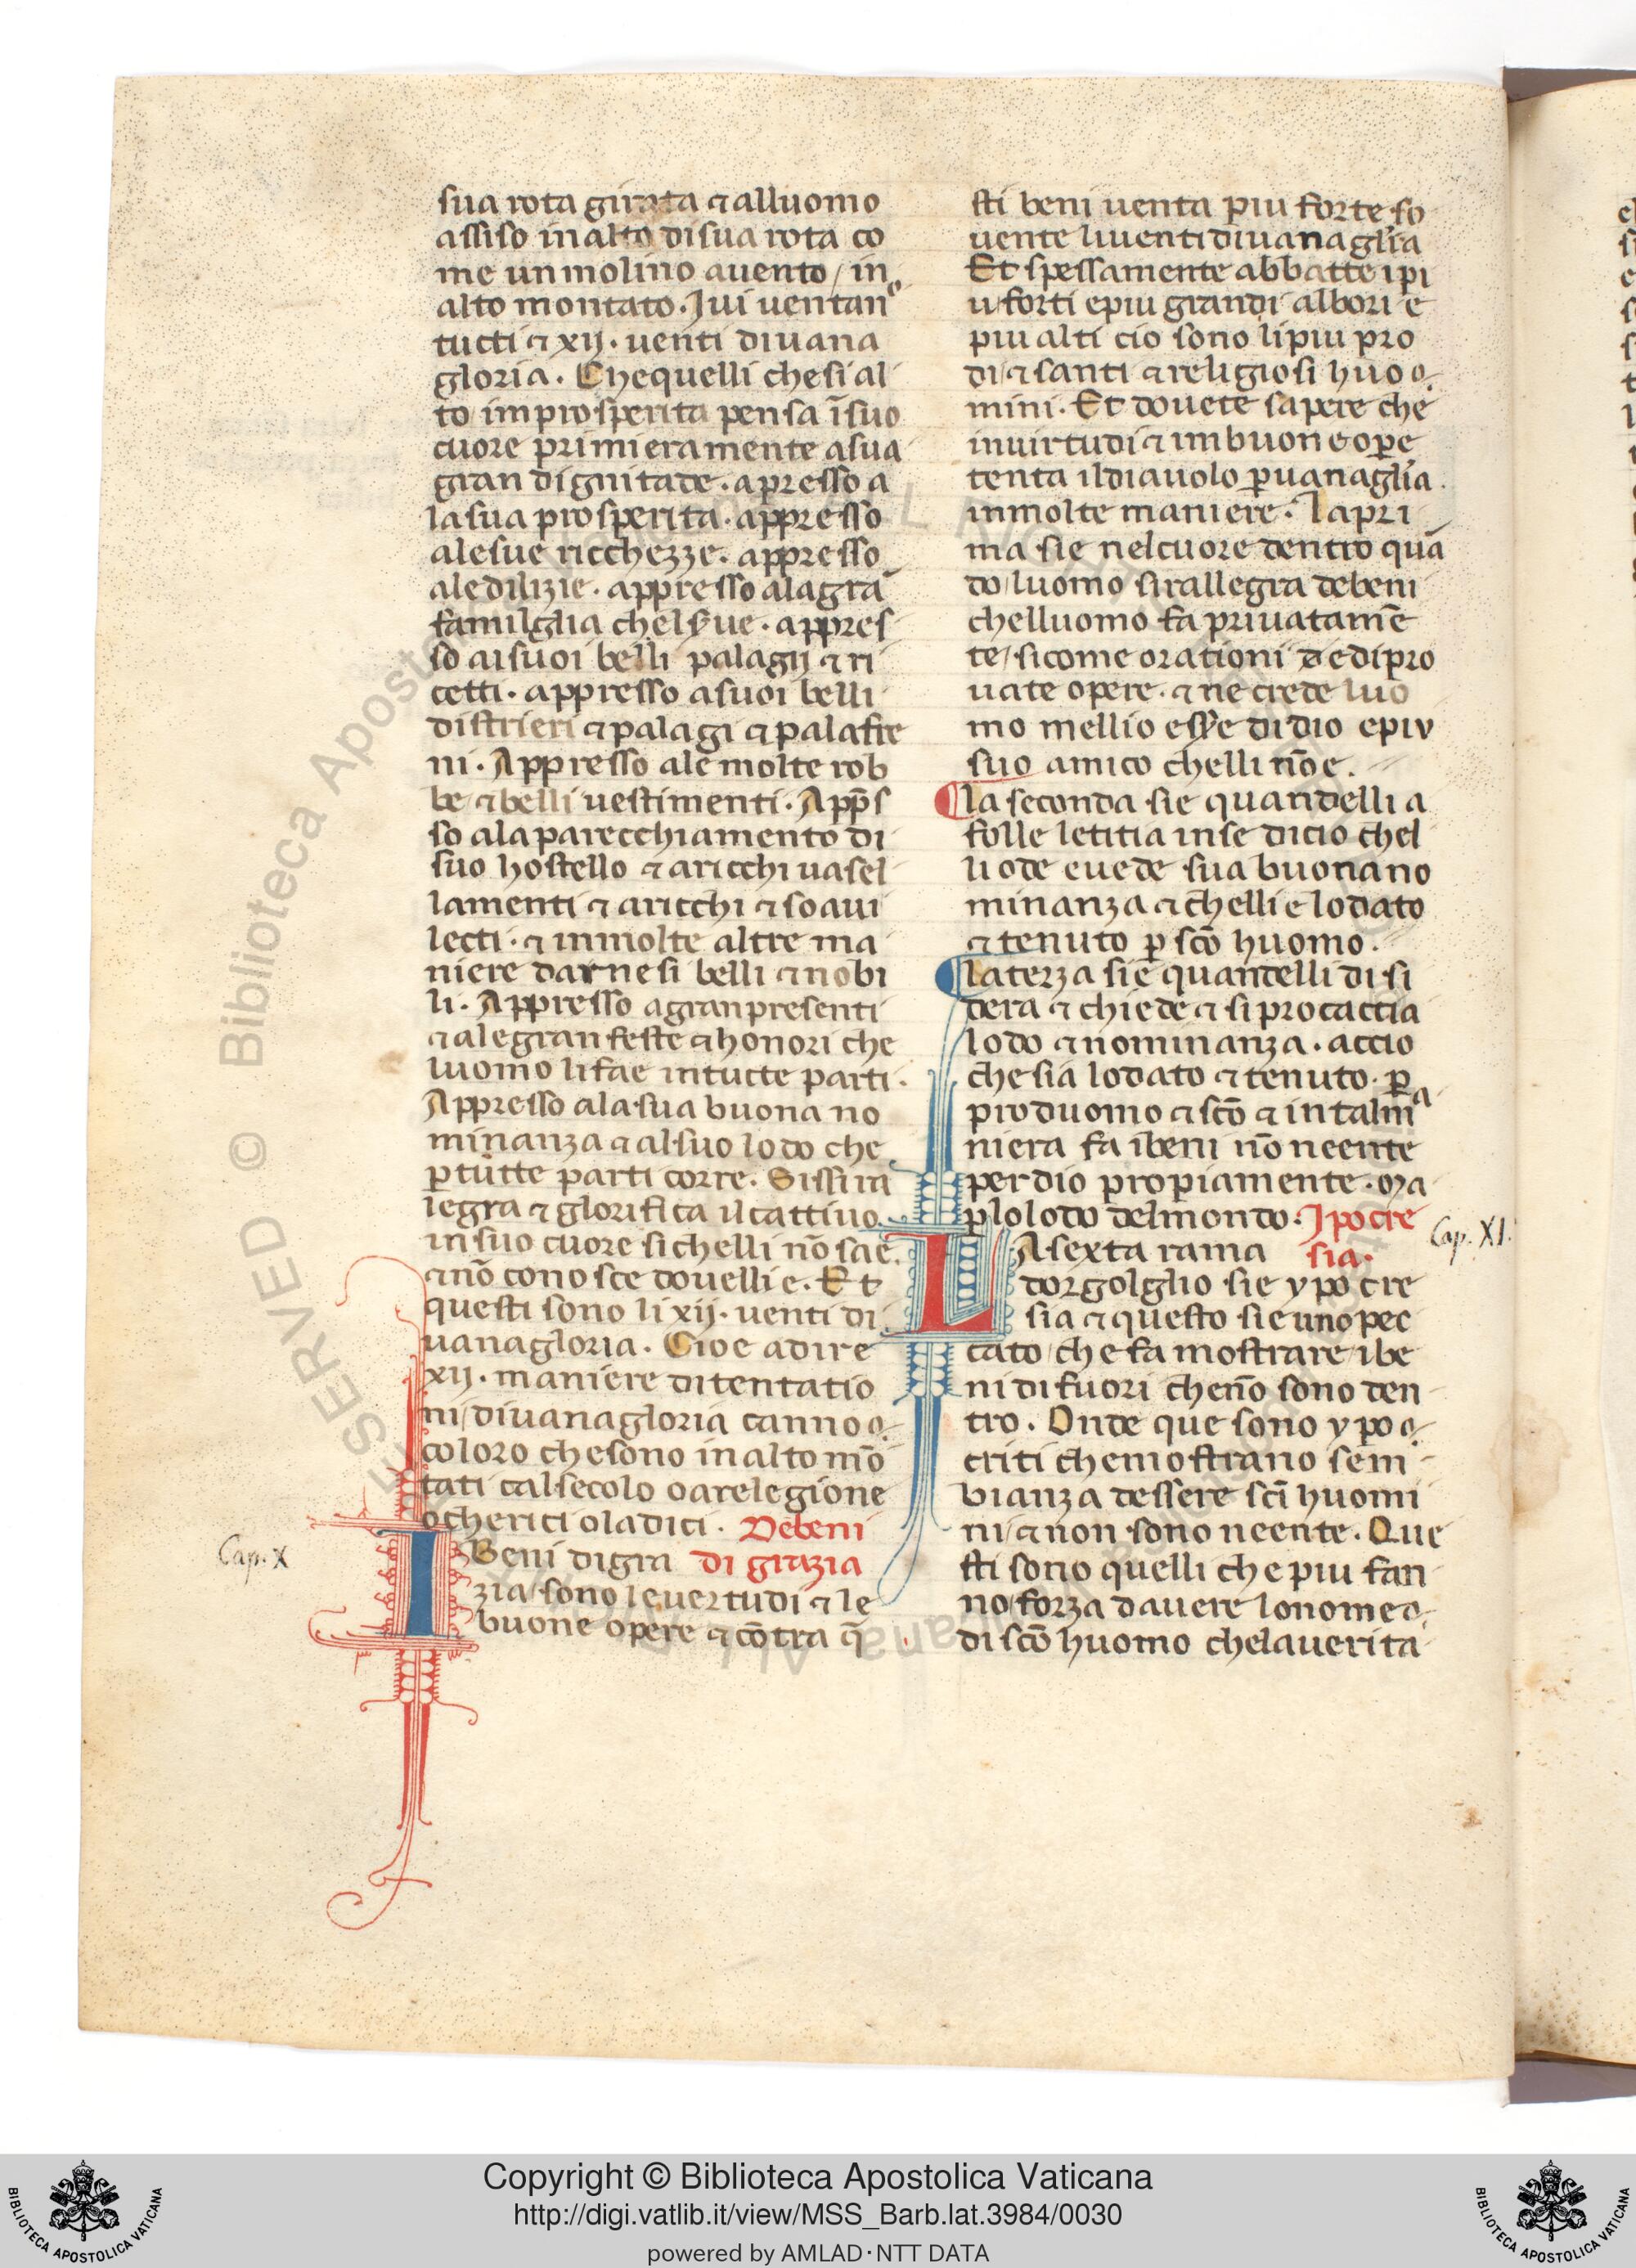 sua rota girata ⁊ alluomo
assiso in alto di sua rota co
me un molino a uento / in
alto montato. Iui uentanº
tucti ⁊ xij. uenti di uana
gloria. Che quelli che si al
to im prosperita pensa ĩ suo
cuore primieramente a sua
gran dignitade. apresso a
la sua prosperita. appresso
ale sue ricchezze. appresso
ale dilizie. appresso ala grã
familglia chel serue. appres
so ai suoi belli palagij ⁊ ri
cetti. appresso a suoi belli
distrieri ⁊ palagi ⁊ palafre
ni. Appresso ale molte rob
be ⁊ belli uestimenti. App̃s
so al aparecchiamento di
suo hostello ⁊ a ricchi uasel
lamenti ⁊ a ricchi ⁊ soaui
lecti. ⁊ in molte altre ma
niere darnesi belli ⁊ nobi
li. Appresso a gran presenti
⁊ ale gran feste ⁊ honori che
luomo li fae in tucte parti.
Appresso ala sua buona no
minanza ⁊ al suo lodo che
ꝑ tutte parti corre. Si ssi ra
legra ⁊ glorifica il cattiuo
in suo cuore si chelli nõ sae
⁊ nõ conosce douelli e. Et
questi sono li xij. uenti di
uanagloria. Cioe a dire
xij. maniere di tentatio
ni / di uanagloria canno
coloro che sono in alto mõ
tati cal secolo o a relegione
o cherici o ladici. De beni
I Beni di gra di grazia
zia sono le uertudi ⁊ le
buone opere ⁊ cõtra q̃
Cap. X
sti beni uenta piu forte so
uente li uenti di uanagl̃ia
Et spessamente abbatte i pi
u forti e piu grandi albori e
piu alti cio sono li piu pro
di ⁊ santi ⁊ religiosi huo
mini. Et douete sapere che
in uirtudi ⁊ im buone oꝑe
tenta il diauolo ꝑ uanagl̃ia.
in molte maniere. La pri
ma sie nel cuore dentro quã
do luomo si rallegra de beni
chelluomo fa priuatamẽ
te / si come orationi ⁊ di pro
uate opere. ⁊ ne crede luo
mo mellio essere di dio e piu
suo amico chelli nõ e.
La seconda sie quandelli a
folle letitia in se di cio chel
li ode e uede sua buona no
minanza ⁊ chelli e lodato
⁊ tenuto ꝑ scõ huomo.
La terza sie quandelli disi
dera ⁊ chiede ⁊ si procaccia
lodo ⁊ nominanza. accio
che sia lodato ⁊ tenuto. ꝑ
produomo ⁊ scõ ⁊ in tal mª
niera fa i beni nõ neente
per dio propiamente. ma
ꝑ lo lodo del mondo. Ipocre
LA sexta rama sia.
dorgolglio sie ypocre
sia ⁊ questo sie uno pec
cato / che fa mostrare / i be
ni di fuori che nõ sono den
tro. Onde que sono ypo
criti che mostrano sem
bianza dessere sc̃i huomi
ni ⁊ non sono neente. Que
sti sono quelli che piu fan
no / forza dauere lo nome
di scõ huomo che la uerita
Cap. XI.
Copyright © Biblioteca Apostolica Vaticana
http://digi.vatlib.it/view/MSS_Barb.lat.3984/0030
powered by AMLAD·NTT DATA
BIBLIOTECA APOSTOLICA VATICANA
BIBLIOTECA APOSTOLICA VATICANA